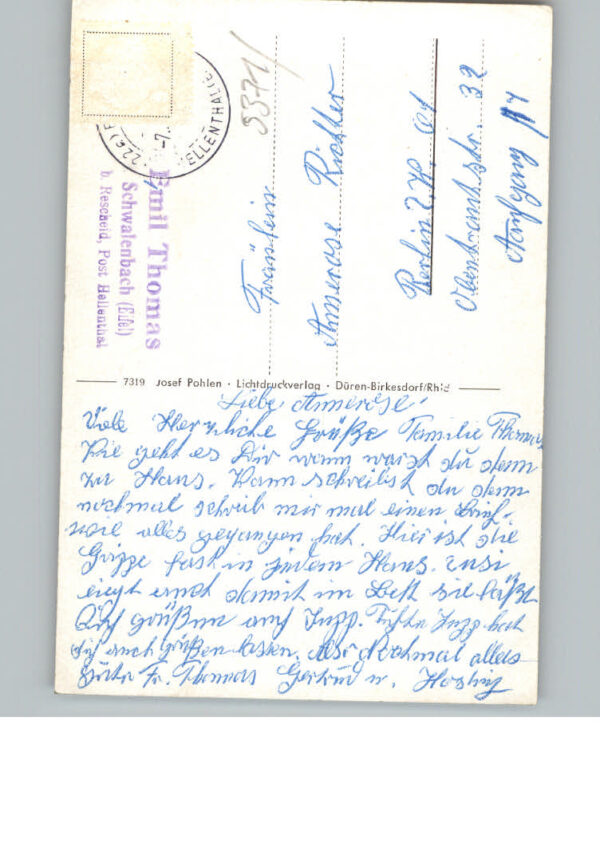 (22c)
HELLENTHAL (E
3371/
Emil Thomas
Schwalenbach (Eifel)
b. Rescheid, Post Hellenthal
Fräulein
Annerose Richter
Berlin
32
7319 Josef Pohlen · Lichtdruckverlag · Düren-Birkesdorf/Rhld
Liebe Annerose!
Viele Herzliche Grüße Familie Thomas
Wie geht es Dir wann warst du denn
zu Haus. Wann schreibst du denn
nochmal schreib mir mal einen Brief
wie alles gegangen hat. Hier ist die
Grippe fast in jedem Haus. Susi
liegt auch damit im Bett sie läßt
Dich grüßen auch Jupp. Jupp hat
dich auch grüßen lassen. Also nochmal alles
Gute Fr. Thomas Gertrud u.